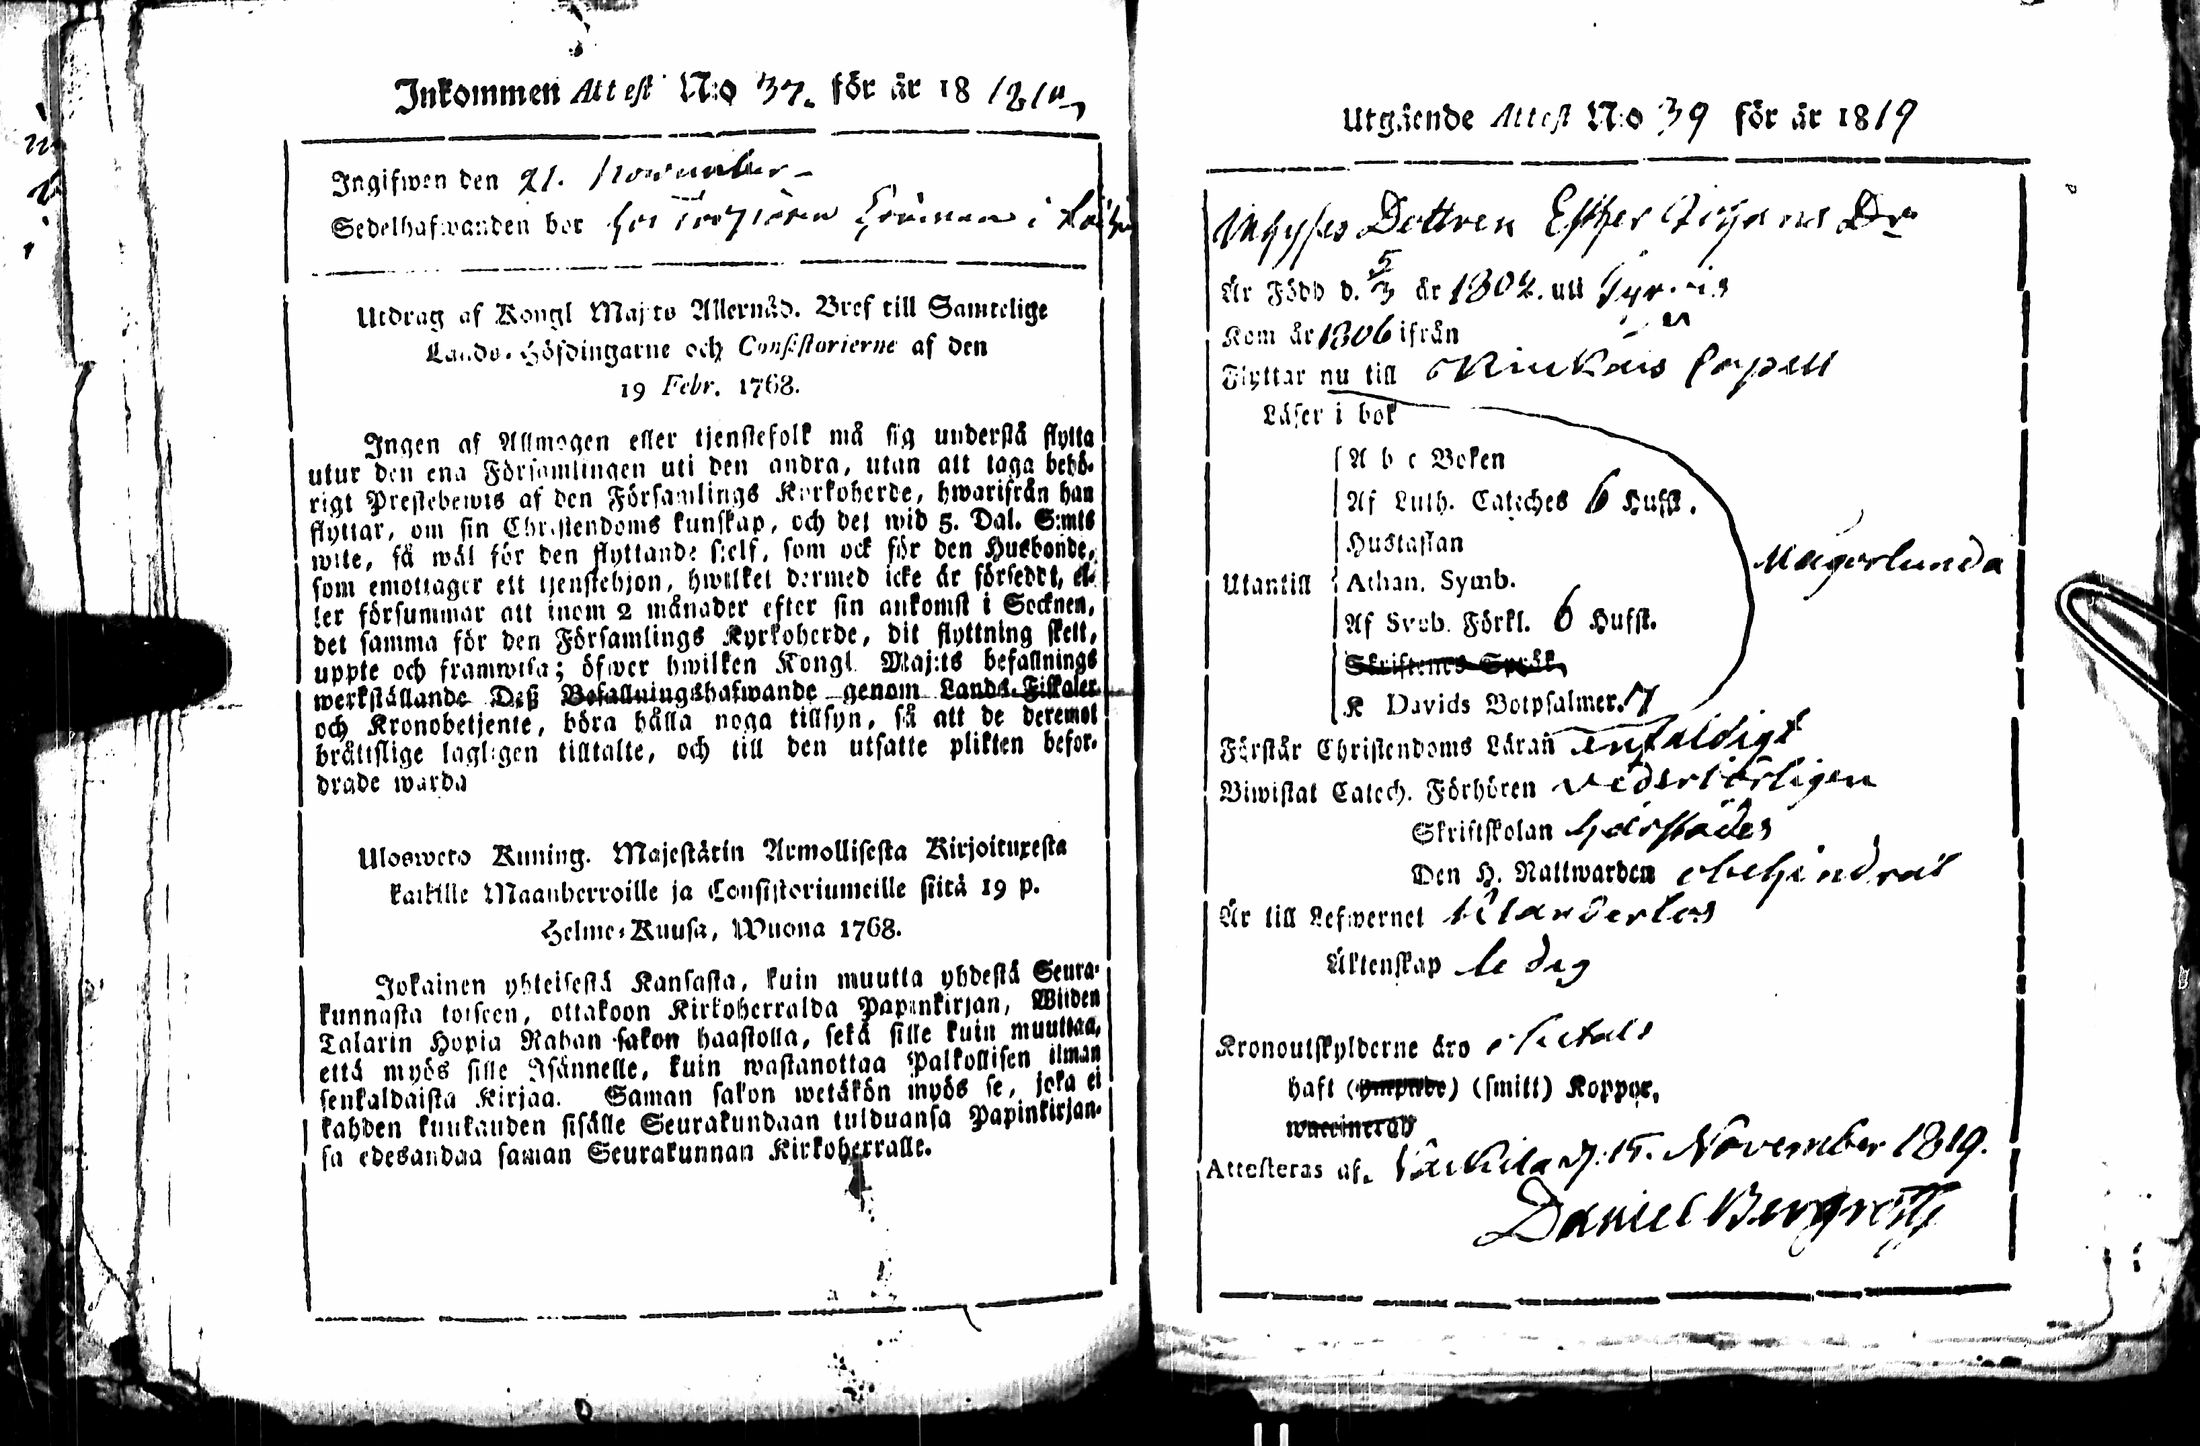 Inkommen Attest N:o 37. för år 18
Ingifwen den 21. November
Sedelhafwanden bor hos i
Utdrag af Kongl Maj:ts Allernåd. Bref till Samtelige
Lands-Höfdingarne och Consistorierne af den
19 Febr. 1768.
Ingen af Allmogen eller tjenstefolk må sig understå flytta
utur den ena Församlingen uti den andra, utan att taga behö-
rigt Prestebewis af den Församlings Kyrkoherde, hwarifrån han
flyttar, om sin Christendoms kunskap, och det wid 5. Dal. S:mts
wite, så wäl för den flyttande sielf, som ock för den Husbonde,
som emottager ett tjenstehjon, hwilket dermed icke är försedt, el-
ler försummar att inom 2 månader efter sin ankomst i Socknen,
det samma för den Församlings Kyrkoherde, dit flyttning skett,
uppte och framwisa; öfwer hwilken Kongl. Maj:ts befallnings
werkställande Deß Befallningshafwande genom Lands-Fiskaler
och Kronobetjente, böra hålla noga tillsyn, så att de deremot
bråttslige lagligen tilltalte, och till den utsatte plikten befor-
drade warda
Ulosweto Kuning. Majestätin Armollisesta Kirjoituxesta
kaikille Maanherroille ja Consistoriumeille siitä 19 p.
Helme-Kuusa, Wuona 1768.
Jokainen yhteisestä Kansasta, kuin muutta yhdestä Seura-
kunnasta toiseen, ottakoon Kirkoherralda Papinkirjan, Wiiden
Talarin Hopia Rahan sakon haastolla, sekä sille kuin muuttaa,
että myös sille Isännelle, kuin wastanottaa Palkollisen ilman
senkaldaista Kirjaa. Saman sakon wetäkön myös se, joka ei
kahden kuukauden sisälle Seurakundaan tulduansa Papinkirjan-
sa edesandaa saman Seurakunnan Kirkoherralle.
Utgående Attest N:o 39 för år 1819
Dottren Esther Dr
Är Född d. 5/3 år 1802. uti
Kom år 1806 ifrån
Flyttar nu till Capell
Läser i bok
A b c Boken
Af Luth. Cateches 6 Hufst.
Hustaflan
Utantill Athan. Symb.
Af Sveb. Förkl. 6 Hufst.
Skriftenes Språk,
K Davids Botpsalmer. 7
Mågorlunda
Förstår Christendoms Läran enfaldigt
Biwistat Catech. Förhören vederbörligen
Skriftskolan härstädes
Den H. Nattwarden obehindrat
Är till Lefwernet klanderlös
Äktenskap ledig
Kronoutskylderne äro
haft (ympade) (smitt) Koppor,
waccinerad
Attesteras af. d. 15. November 1819.
Daniel Bergroth